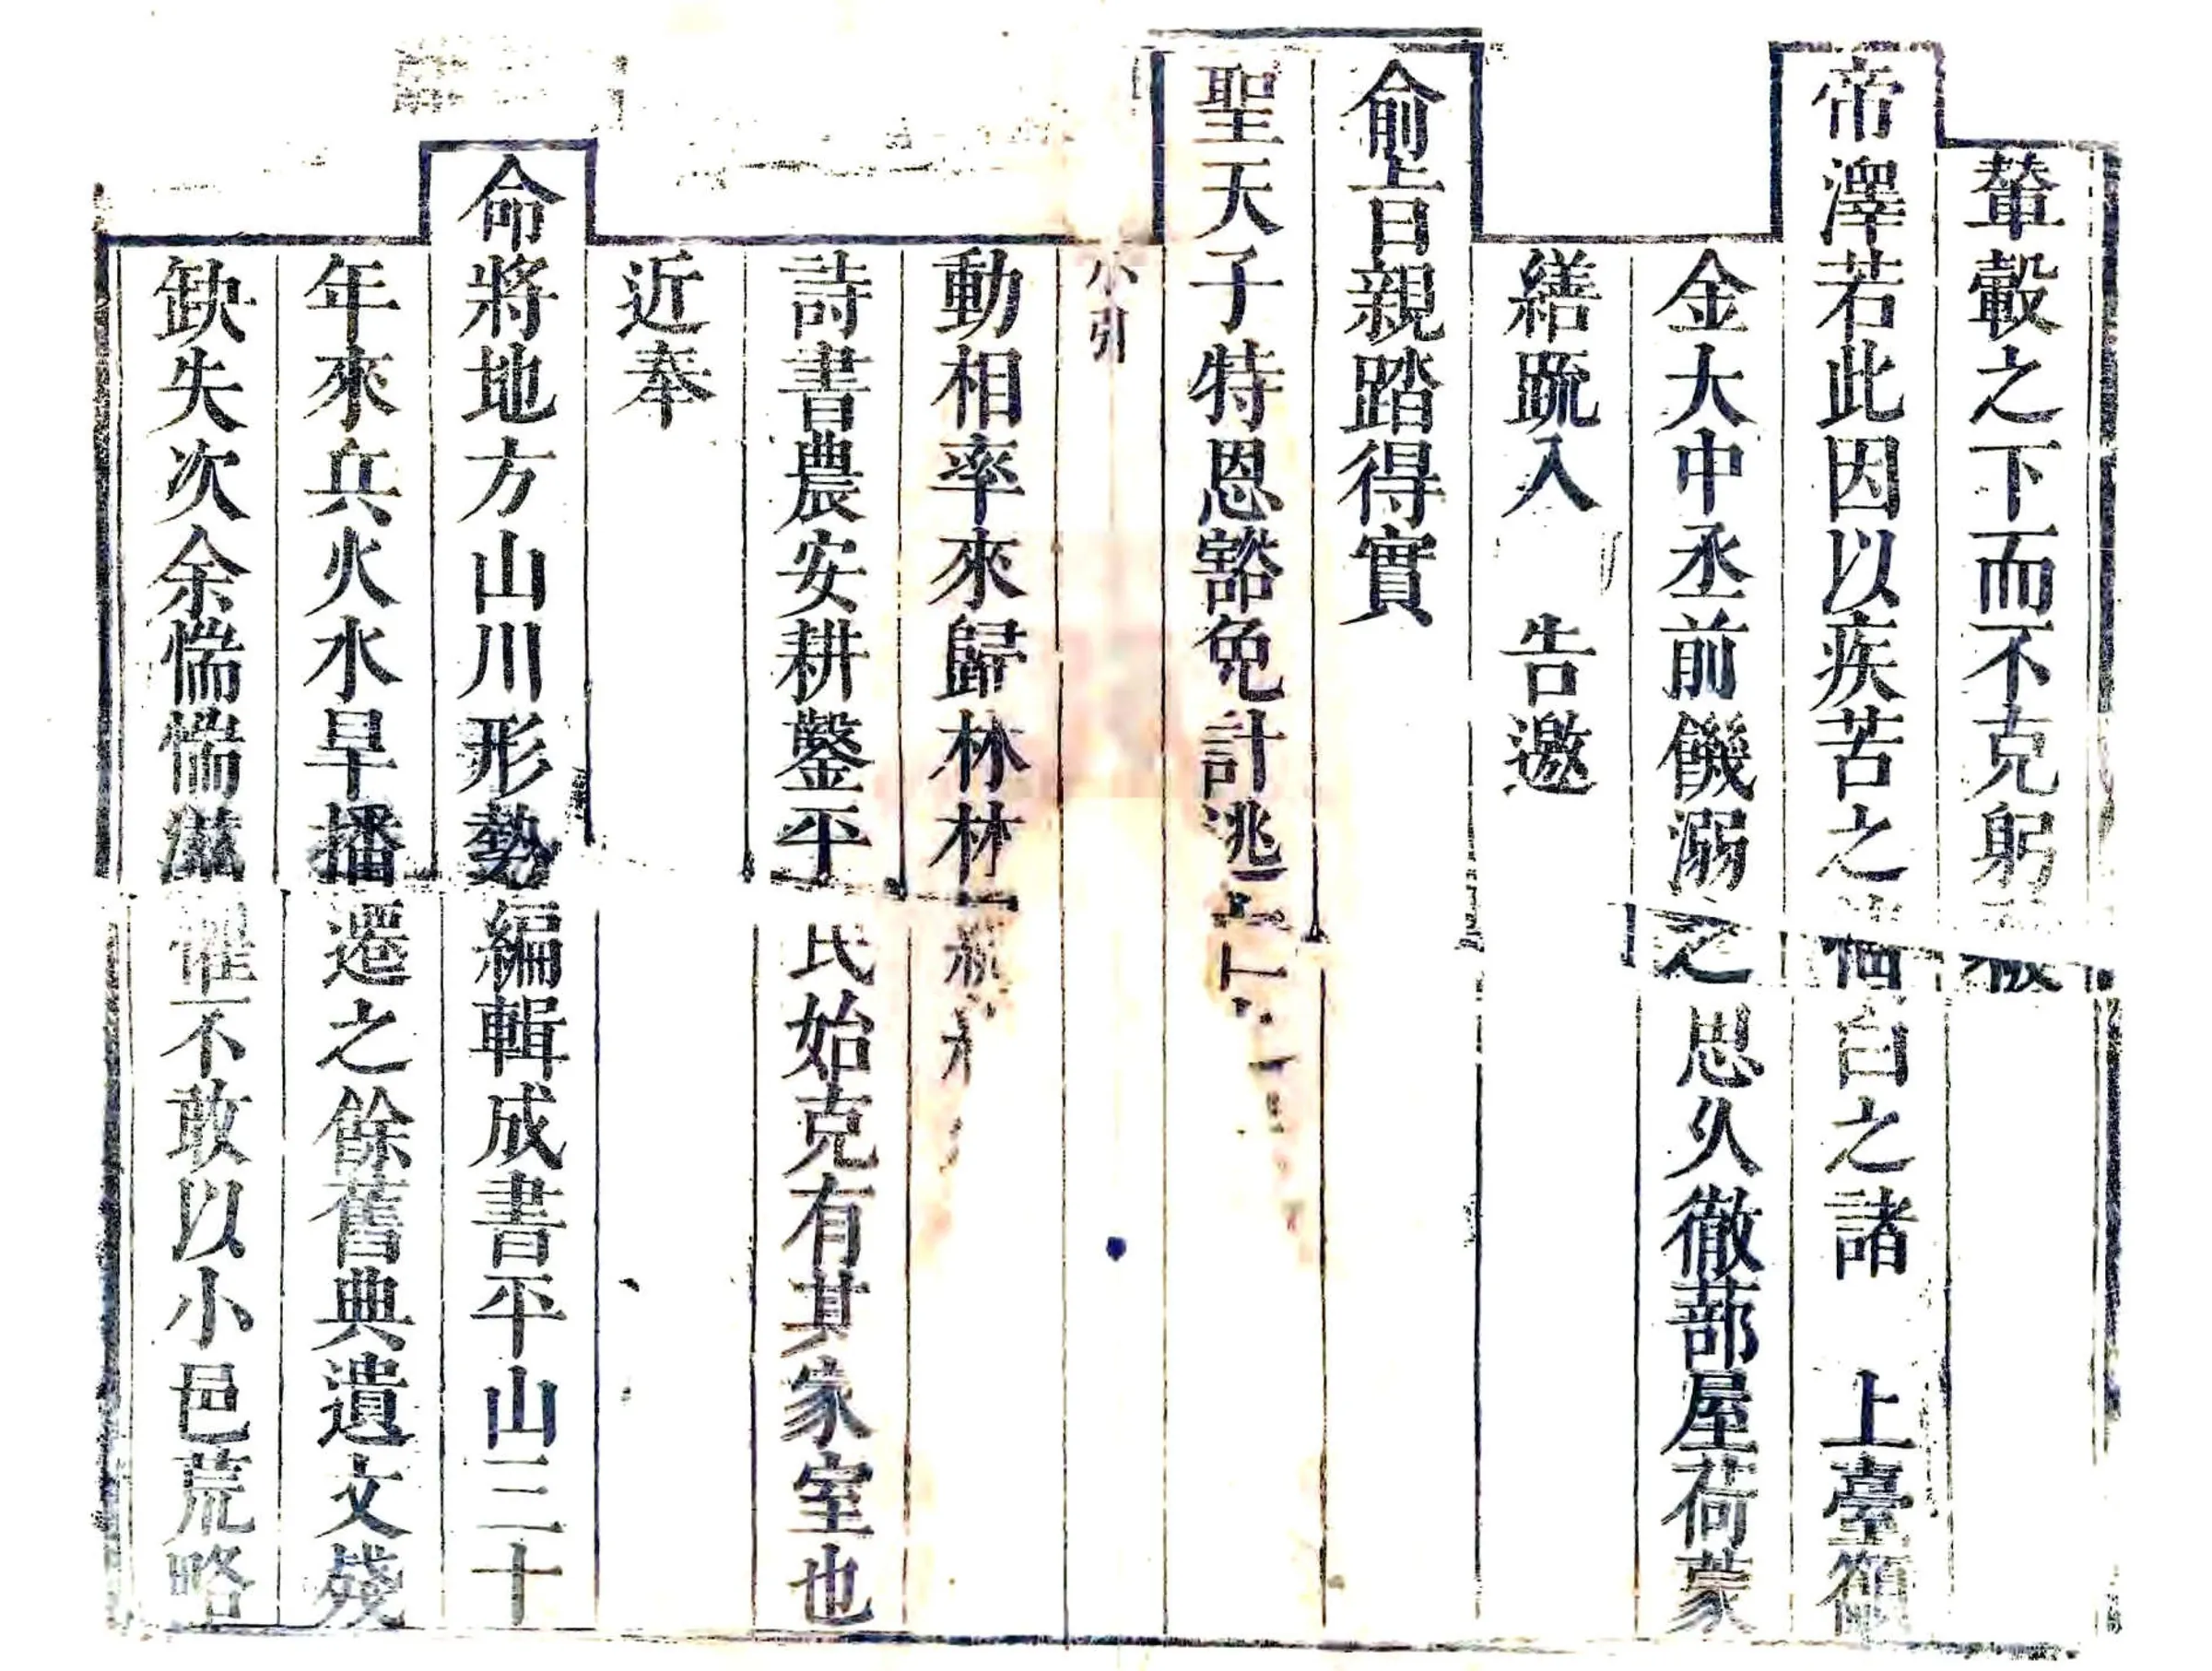 輦轂之下而不克躬被
帝澤若此因以疾苦之情白之諸　上臺額
金大中丞前饑溺之思久徹蔀屋荷蒙
繕䟽入　告邀
俞旨親踏得實
聖天子特恩豁免計逃
動相率來歸林林
詩書農安耕鑿平氏始克有其家室也
近奉
命將地方山川形勢編輯成書平山三十
年來兵火水旱播遷之餘舊典遺文殘
缺失次余惴惴滋懼不敢以小邑荒略
小引